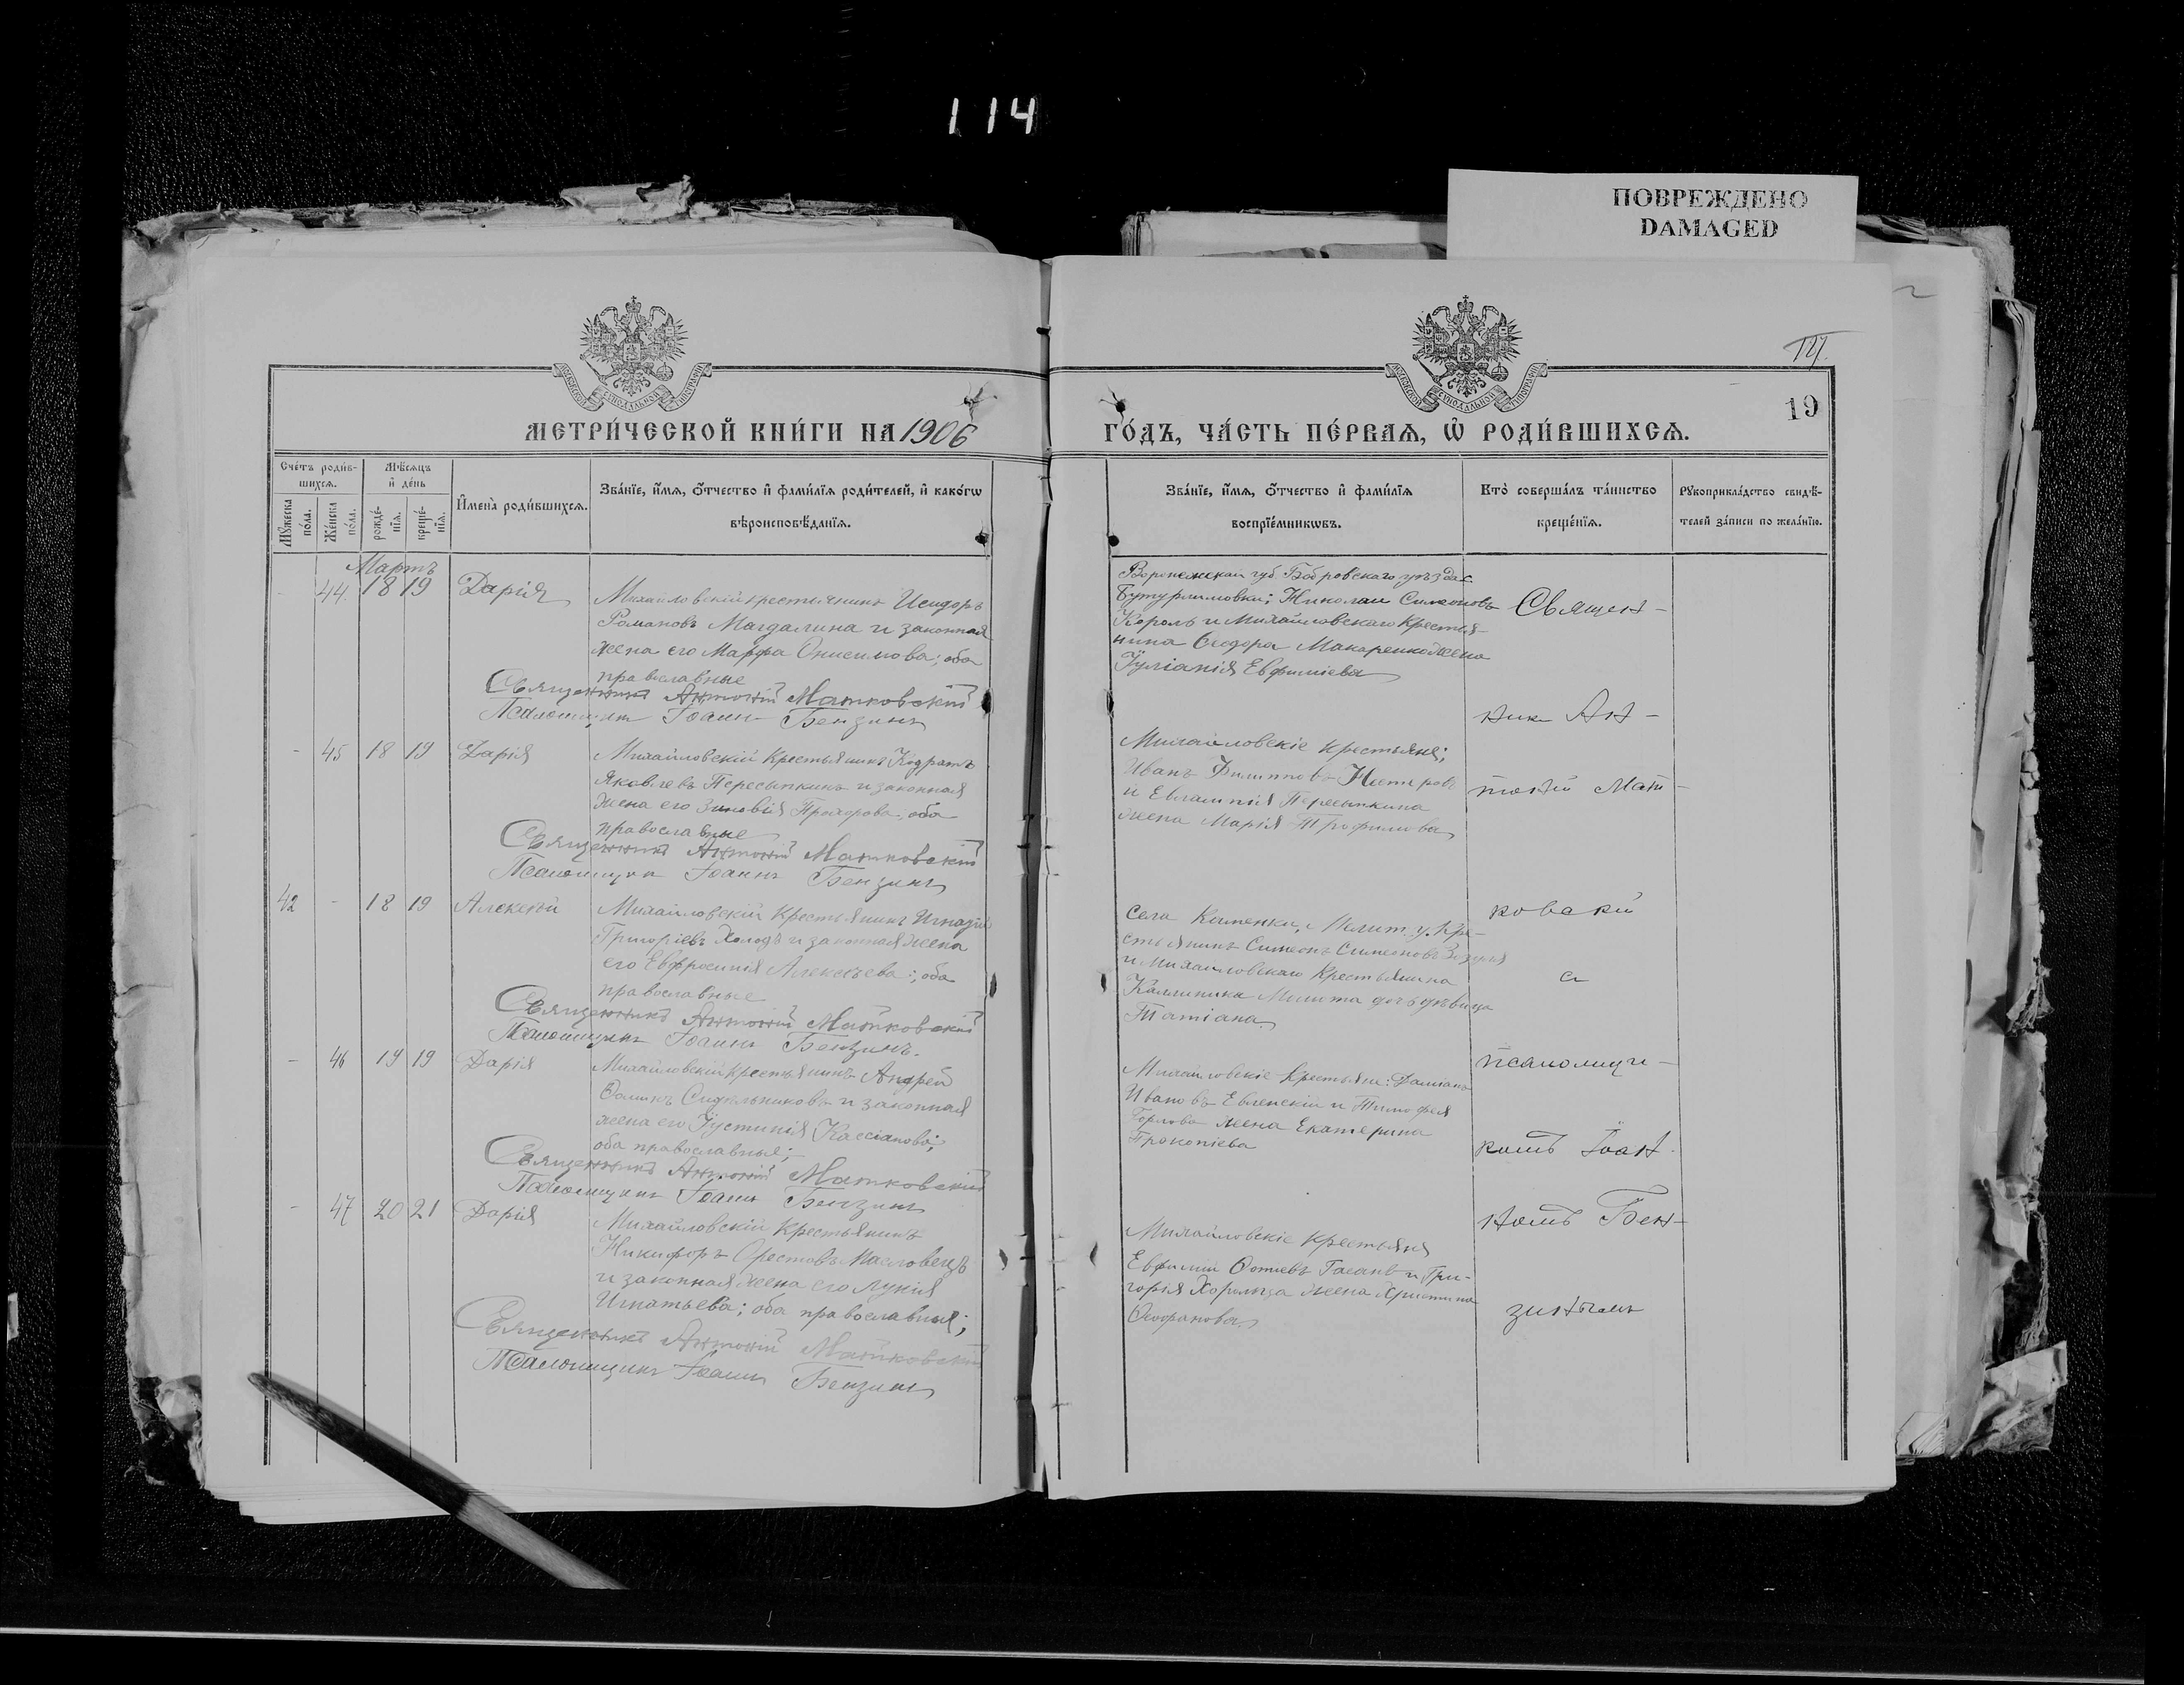 114
ПОВРЕЖДЕНО
DAMAGED
19
МЕТРИ́ЧЕСКОЙ КНИ́ГИ НА 1906
ГО́ДЪ, ЧА́СТЬ ПЕ́РВАѦ, Ѡ҆ РОДИ́ВШИХСѦ.
Сче́тъ роди́в-
шихсѧ.
Мѣ́сѧцъ
и҆ де́нь
Мꙋ́жеска
по́ла.
Же́нска
по́ла.
рожде́-
нїѧ.
креще́-
нїѧ.
И҆мена̀ роди́вшихсѧ.
Зва́нїе, и҆́мѧ, ѻ҆́тчество и҆ фами́лїѧ роди́телей, и҆ како́гѡ
вѣроисповѣ́данїѧ.
Зва́нїе, и҆́мѧ, ѻ҆́тчество и҆ фами́лїѧ
воспрїе́мникѡвъ.
Кто̀ соверша́лъ та́инство
креще́нїѧ.
Рꙋкоприкла́дство свидѣ́-
телей за́писи по жела́нїю.
Мартъ
44 18 19 Дарія
Михайловскій крестьянинъ Исидоръ
Романовъ Магдалина и законная
жена его Марфа Онисимова; оба
православные
Священникъ Антоній Матковскій
Псаломщикъ Іоаннъ Бензинъ
Воронежской губ. Бобровскаго уѣзда с.
Бутурлиновки; Николай Симеоновъ
Король и Михайловскаго Крестья-
нина Ѳеодора Макаренко жена
Іуліанія Евфиміева
- 45 18 19 Дарія
Михайловскій Крестьянинъ Кодратъ
Яковлевъ Пересыпкинъ и законная
жена его Зиновія Прохорова; оба
православные
Священникъ Антоній Матковскій
Псаломщикъ Іоаннъ Бензинъ
Михайловскіе крестьяне;
Иванъ Филипповъ Нестеровъ
и Евлампія Пересыпкина
жена Марія Трофимова
42 - 18 19 Алексѣй
Михайловскій Крестьянинъ Игнатій
Григоріевъ Холодъ и законная жена
его Евфросинія Алексѣева; оба
православные
Священникъ Антоній Матковскій
Псаломщикъ Іоаннъ Бензинъ.
Села Каменки, Мелит. у. Кре-
стьянинъ Симеонъ Симеоновъ
и Михайловскаго Крестьянина
Каллиника дочь дѣвица
Татіана
- 46 19 19 Дарія
Михайловскій крестьянинъ Андрей
Ѳоминъ Сидельниковъ и законная
жена его Іустинія Кассіанова;
оба православные;
Священникъ Антоній Матковскій
Псаломщикъ Іоаннъ Бензинъ
Михайловскіе Крестьяне: Даміанъ
Ивановъ Евленскій и Тимофея
Горлова жена Екатерина
Прокопіева
- 47 20 21 Дарія
Михайловскій Крестьянинъ
Никифоръ Орестовъ Масловецъ
и законная жена его Лукія
Игнатьева; оба православные;
Священникъ Антоній Матковскій
Псаломщикъ Іоаннъ Бензинъ
Михайловскіе крестьяне
Евфимій Фотіевъ и Гри-
горія Хорольца жена Христина
Священ-
ник Ан-
тоній Мат-
ковскій
с
псаломщи-
комъ Іоан-
номъ Бен-
зинымъ